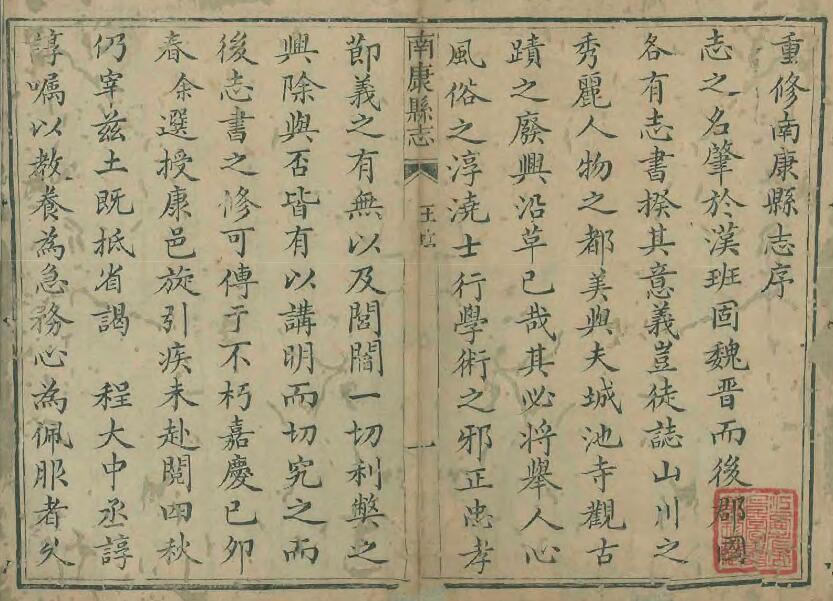 重修南康縣志序
志之名肇於漢班固魏晉而後郡國
各有志書揆其意義豈徒誌山川之
秀麗人物之都美與夫城池寺觀古
蹟之廢興沿革已哉其必將舉人心
風俗之淳澆士行學術之邪正忠孝
南康縣志
王序
一
節義之有無以及閭閻一切利弊之
興除與否皆有以講明而切究之而
後志書之修可傳于不朽嘉慶己卯
春余選授康邑旋引疾未赴閱四秋
仍宰茲土既抵省謁 程大中丞諄
諄囑以教養為急務心為佩服者久